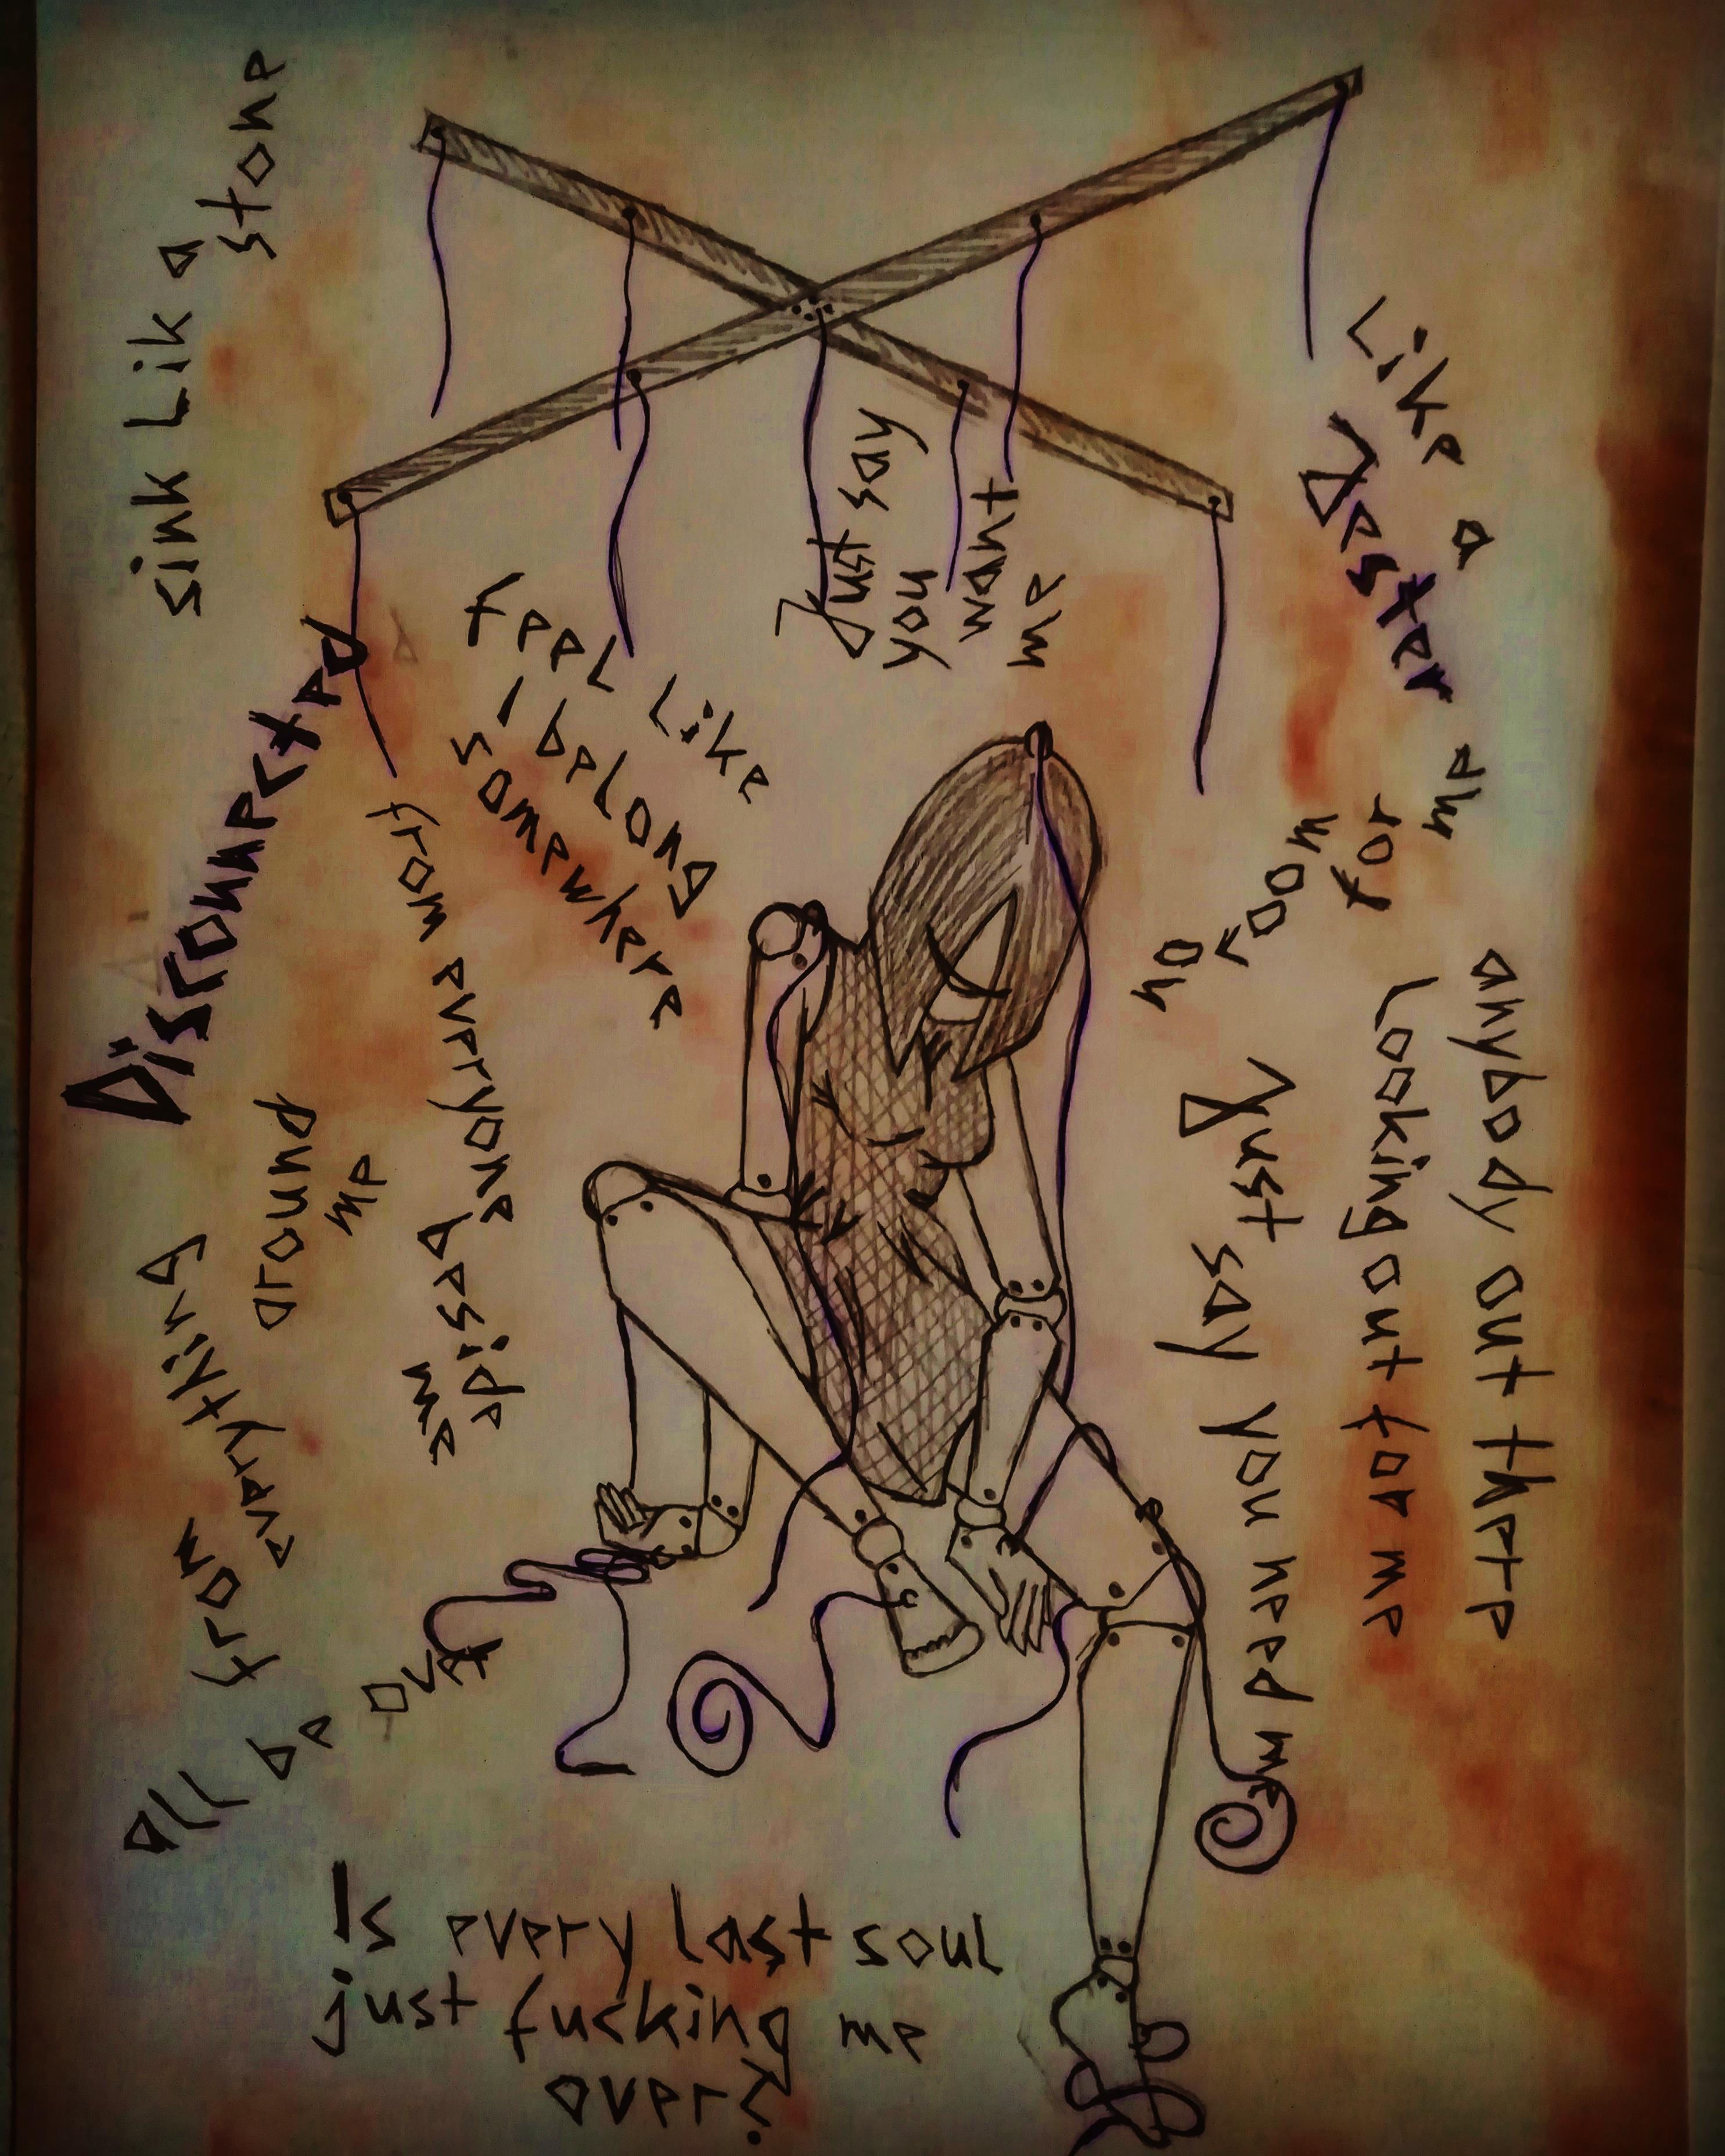 sink Lik a
stone
Disconnected
from everyone
beside
me
feel like
I belong
somewhere
Just say
you
want
me
Like a
Jester
no room
for
me
anybody out there
Looking out for me
Just say you need me
everything
around
me
from
all be over
Is every last soul
just fucking me
over?